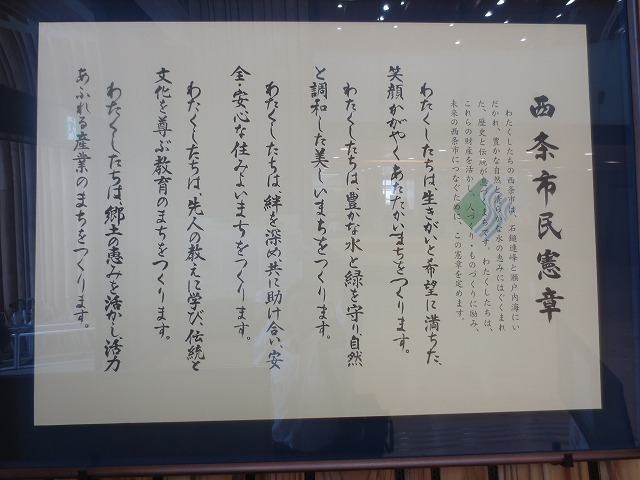 西条市民憲章
わたくしたちの西条市は、石鎚連峰と瀬戸内海にい
だかれ、豊かな自然と清らかな水の恵みにはぐくまれ
た、歴史と伝統が息づくまちです。わたくしたちは、
これらの財産を活かし、人づくり・ものづくりに励み、
未来の西条市につなぐために、この憲章を定めます。
わたくしたちは、生きがいと希望に満ちた、
笑顔かがやくあたたかいまちをつくります。
わたくしたちは、豊かな水と緑を守り、自然
と調和した美しいまちをつくります。
わたくしたちは、絆を深め、共に助け合い、安
全・安心な住みよいまちをつくります。
わたくしたちは、先人の教えに学び、伝統と
文化を尊ぶ教育のまちをつくります。
わたくしたちは、郷土の恵みを活かし、活力
あふれる産業のまちをつくります。